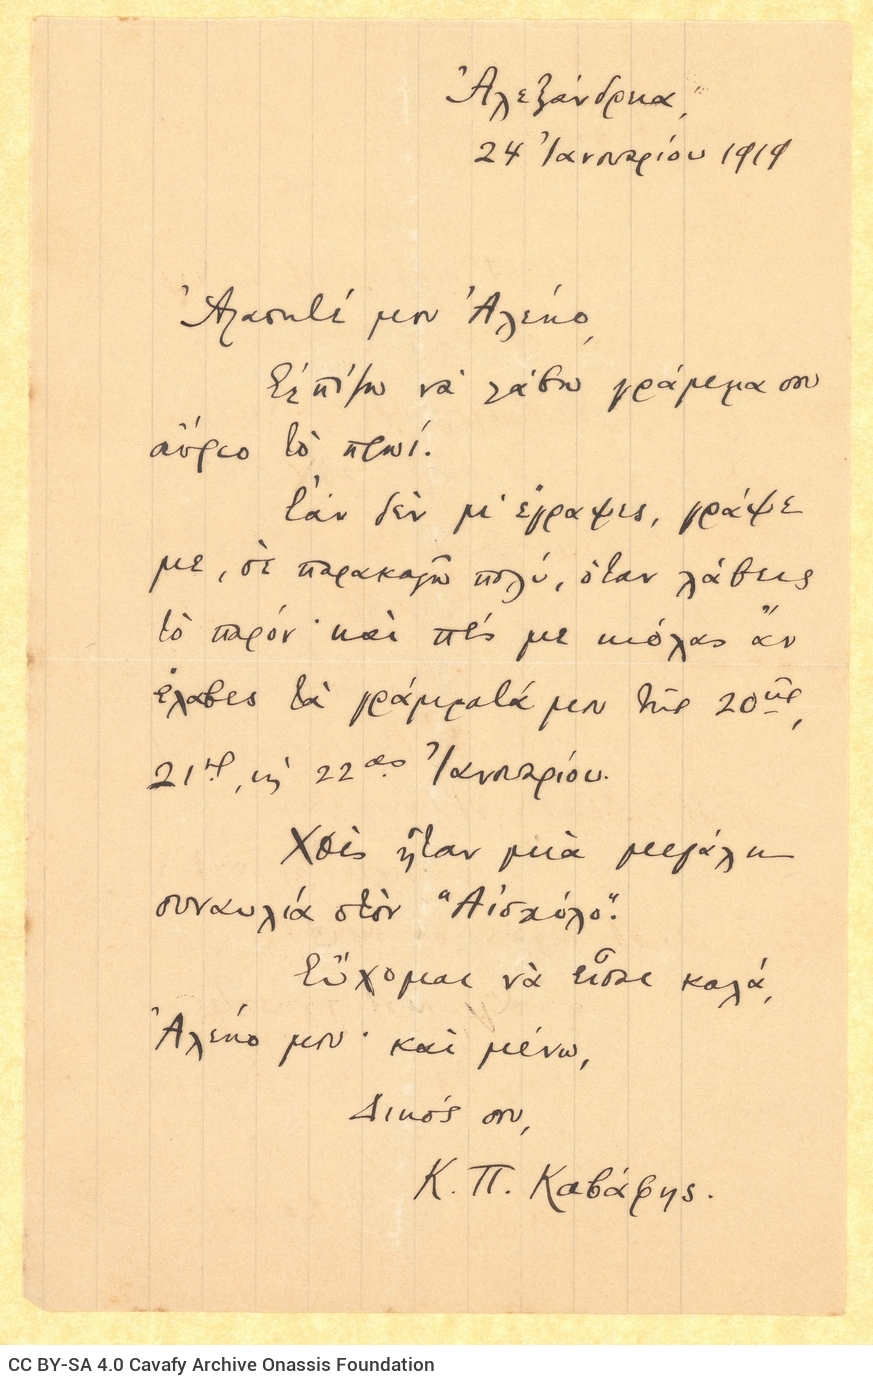 Ἀλεξάνδρεια,
24 Ἰανουαρίου 1919
Ἀγαπητέ μου Ἀλέκο,
Ἐλπίζω νὰ λάβω γράμμα σου
αὔριο τὸ πρωί.
Ἐὰν δὲν μ' ἔγραψες, γράψε
με, σὲ παρακαλῶ πολύ, ὅταν λάβεις
τὸ παρόν· καὶ πές με κιόλας ἂν
ἔλαβες τὰ γράμματά μου τῆς 20ῆς,
21ης, κὴ 22ας Ἰανουαρίου.
Χθὲς ἦταν μιὰ μεγάλη
συναυλία στὸν "Αἰσχύλο".
Εὔχομαι νὰ εἶσαι καλά,
Ἀλέκο μου· καὶ μένω,
Δικός σου,
Κ. Π. Καβάφης.
CC BY-SA 4.0 Cavafy Archive Onassis Foundation